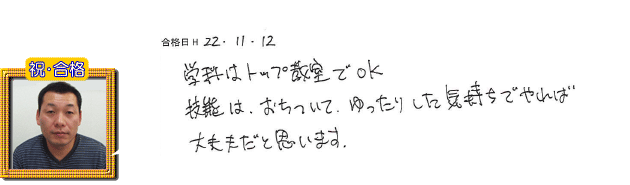 合格日 H 22・11・12
祝・合格
学科はトップ教室でOK
技能は、おちついて、ゆったりした気持ちでやれば
大丈夫だと思います。